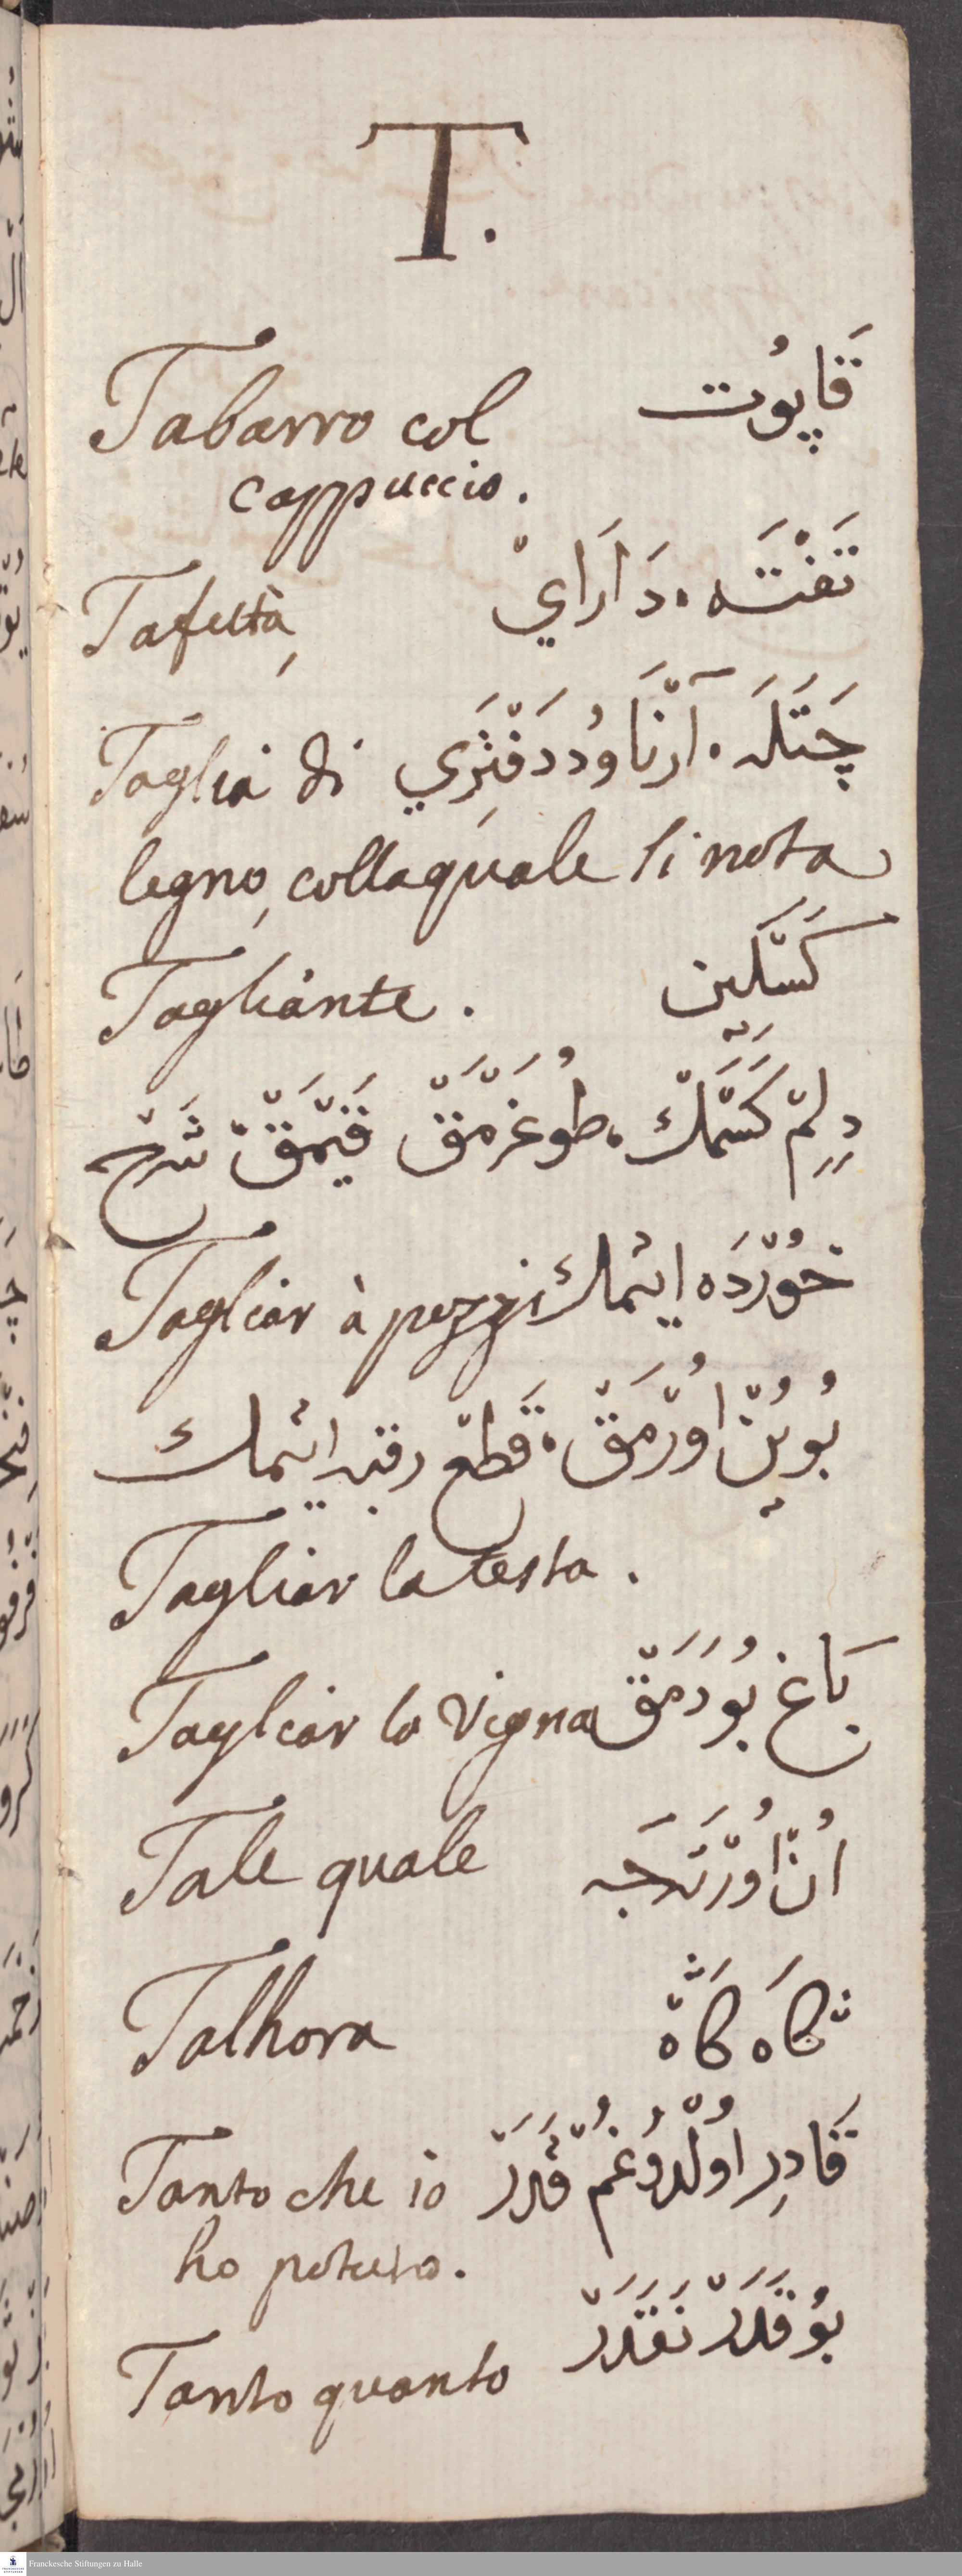 T.
Tabarro col قَاپُوت
cappuccio.
Tafettà, تَفْتَه، دَارَايْ
Taglia di چَتَلَه. آرْنَاوُد دَفْتَرِي
legno, collaquale si nota
Tagliante. كَسْكِين
دِلِمْ كَسْمَكْ، طُوغْرَمَقْ قَيْمَقْ شَرْح
Tagliar à pezzi خُورْدَه ايتمك
بُويُنْ اُورْمَقْ، قَطْعْ رقبه ايتمك
Tagliar la testa.
Tagliar la Vigna بَاغ بُودَمَقْ
Tale quale اُنْ اُورْتَجَه
Talhora كَاه كَاهْ
Tanto che io قَادِر اُولْدُوغُمْ قَدَرْ
ho potuto.
Tanto quanto بُو قَدَرْ نَقَدَرْ
Franckesche Stiftungen zu Halle